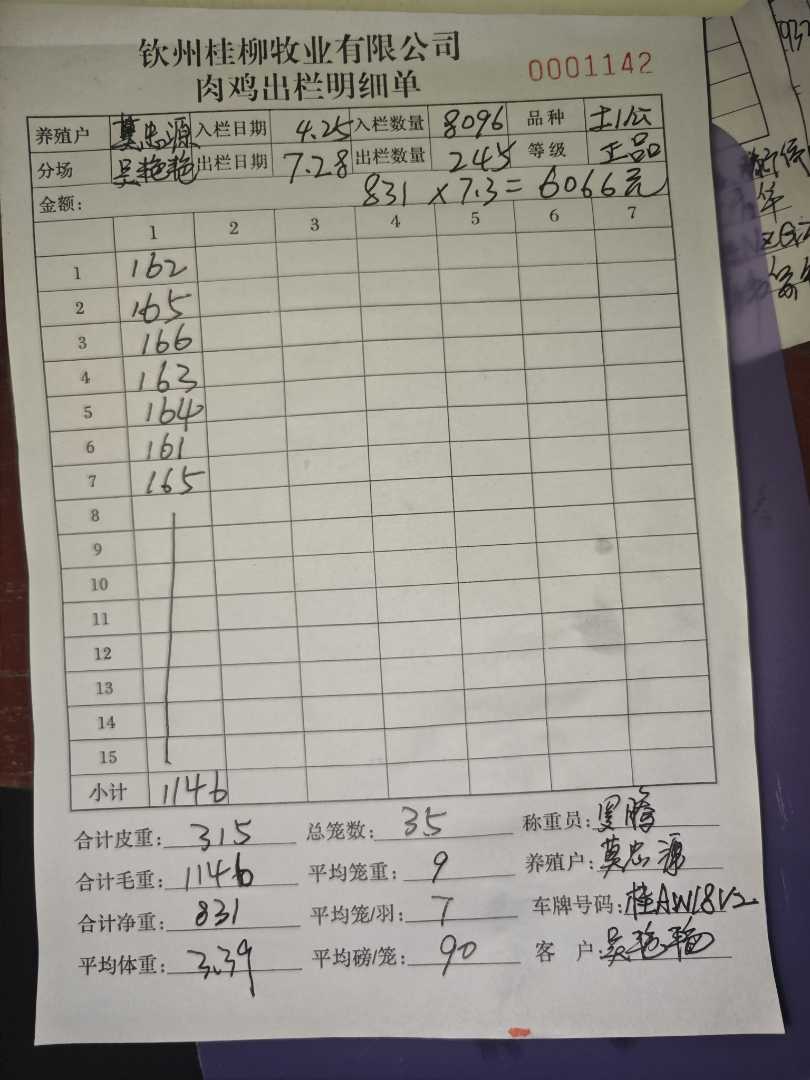 钦州桂柳牧业有限公司
肉鸡出栏明细单 0001142
养殖户 莫忠源 入栏日期 4.25 入栏数量 8096 品种 土1公
分场 吴艳艳 出栏日期 7.28 出栏数量 245 等级 正品
金额: 831 x 7.3 = 6066元
1 2 3 4 5 6 7
1 162
2 165
3 166
4 163
5 164
6 161
7 165
8
9
10
11
12
13
14
15
小计 1146
合计皮重: 315 总笼数: 35 称重员:
合计毛重: 1146 平均笼重: 9 养殖户: 莫忠源
合计净重: 831 平均笼/羽: 7 车牌号码: 桂AW18V2
平均体重: 3.39 平均磅/笼: 90 客 户: 吴艳艳